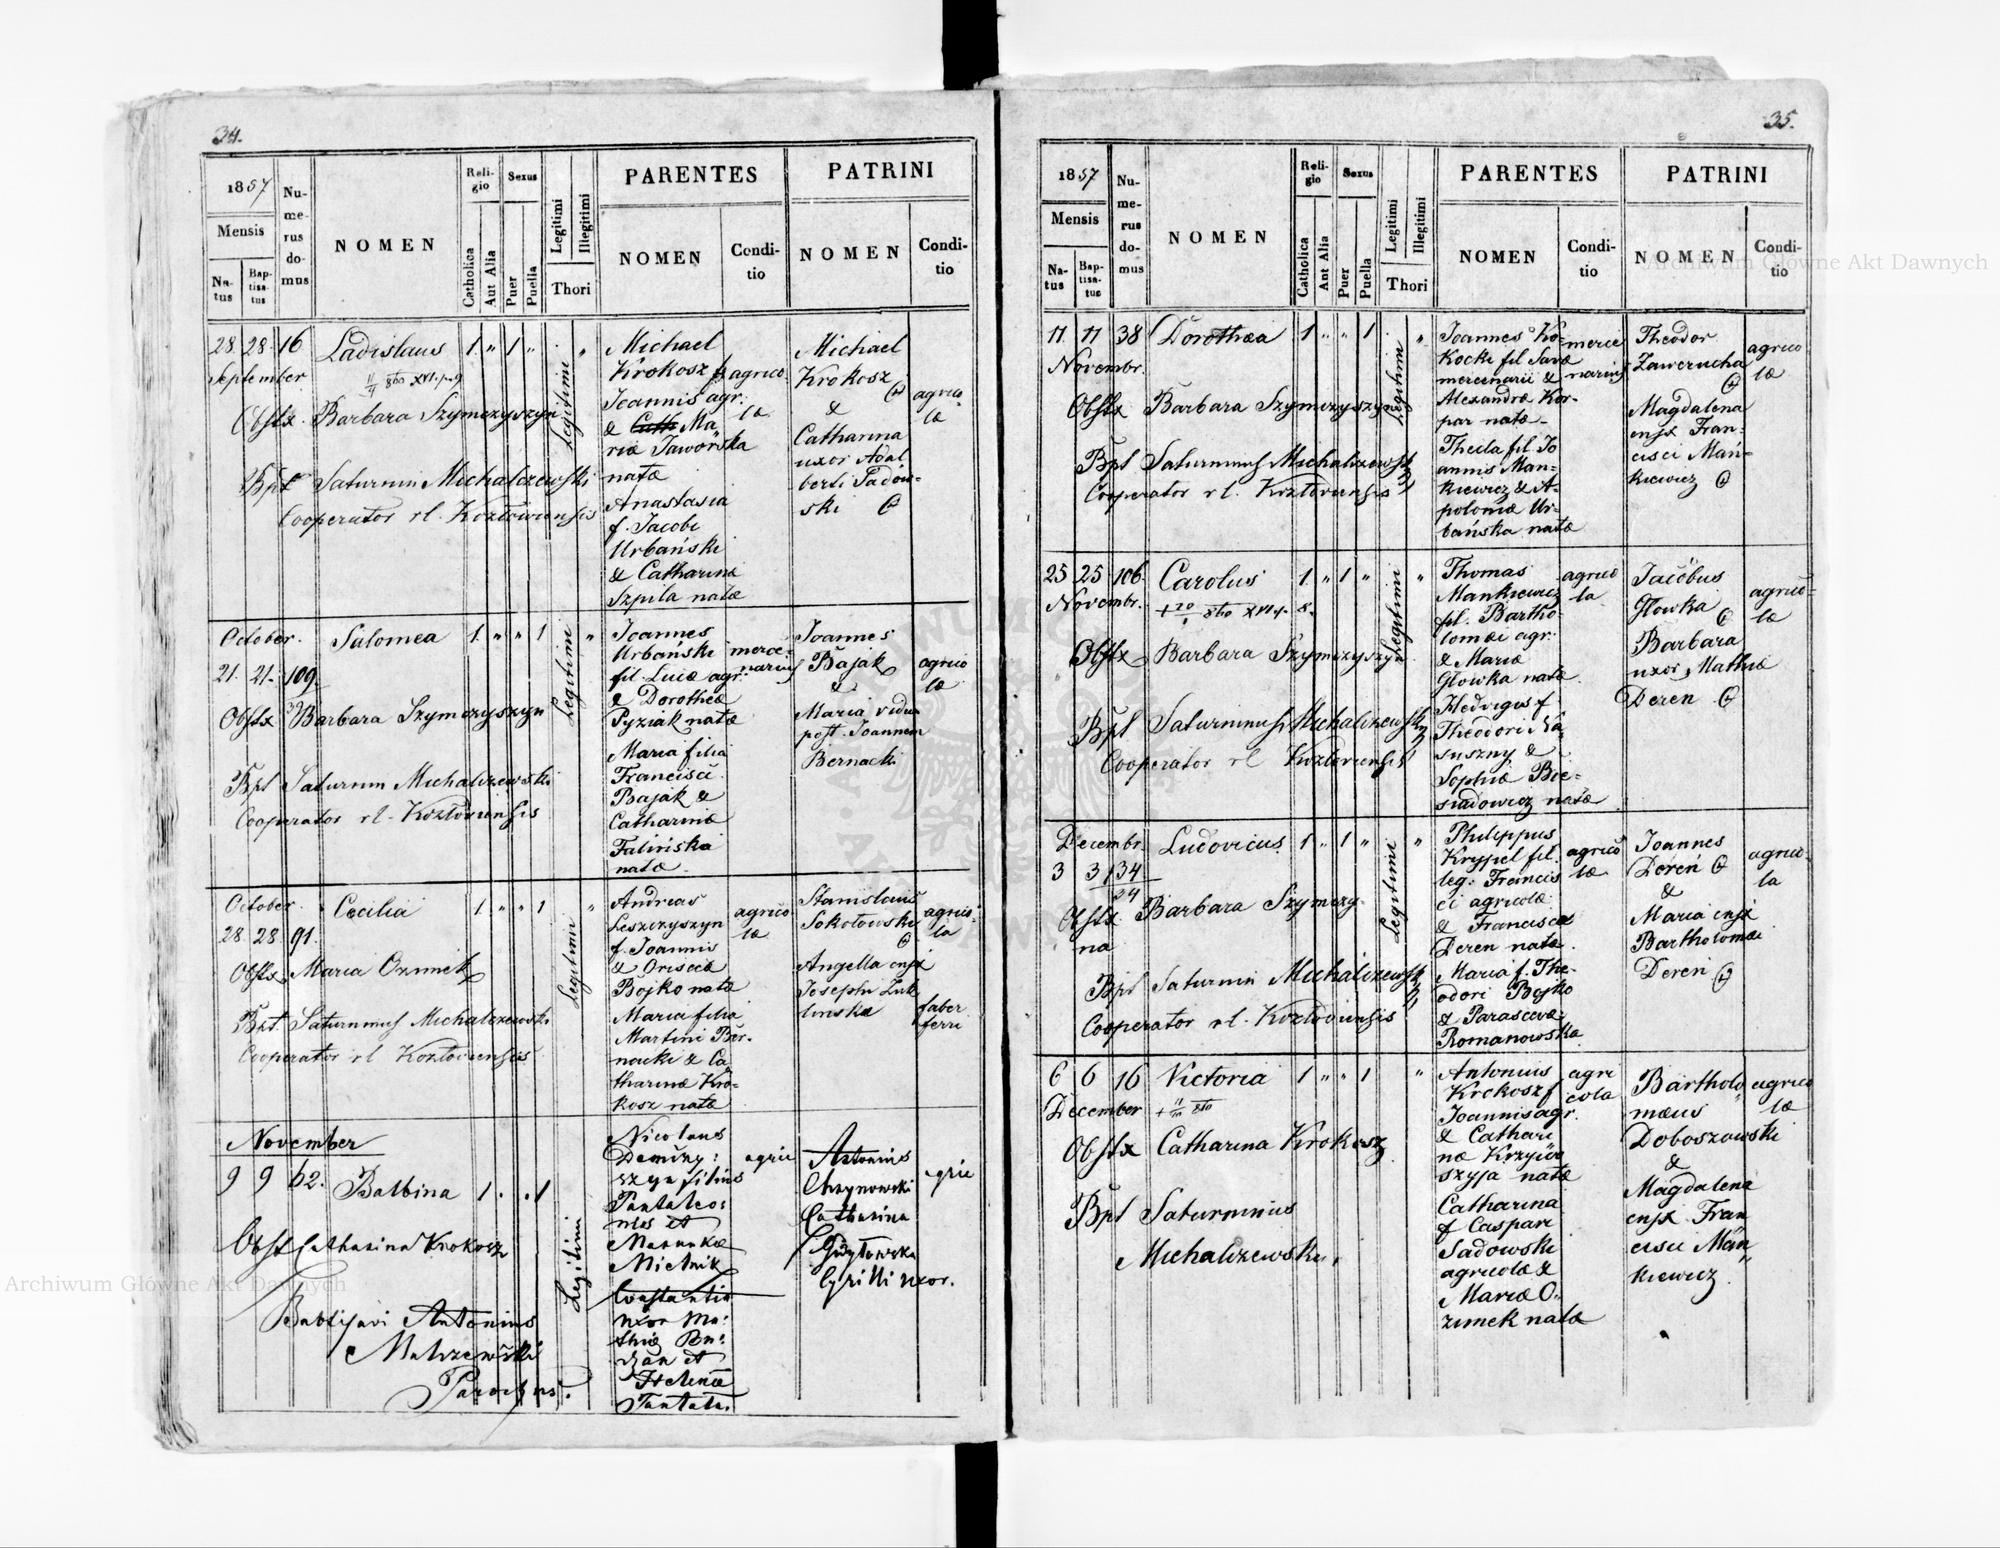 34.
1857
Mensis
Na-
tus
Bap-
tisa-
tus
Nu-
me-
rus
do-
mus
NOMEN
Reli-
gio
Catholica
Aut Alia
Sexus
Puer
Puella
Legitimi
Illegitimi
Thori
PARENTES
NOMEN
Condi-
tio
PATRINI
NOMEN
Condi-
tio
28 28 16 Ladislaus 1 " 1 " "
September
Obstx Barbara Szymczyszyn
Bpt Saturnin Michalczewski
Cooperator rl. Kozłoviensis
Legitimi
Michael
Krokosz f
Joannis agr.
& Ma
riæ Jaworska
natæ
Anastasia
f. Jacobi
Urbański
& Catharinæ
Szpila natæ
agrico
la
Michael
Krokosz
&
Catharina
uxor Adal
berti Sadow-
ski
agrico
læ
October Salomea 1 " " 1 "
21. 21. 109
Obstx Barbara Szymczyszyn
Bpt Saturnin Michalczewski
Cooperator rl. Kozłoviensis
Legitimi
Joannes
Urbański
fil. Lucæ agr.
& Dorotheæ
Pyziak natæ
Maria filia
Francisci
Bajak &
Catharinæ
Falińska
natæ.
merce-
narius
Joannes
Bajak
&
Maria vidua
post Joannem
Bernacki
agrico
læ
October Cecilia 1 " " 1 "
28 28 91.
Obstx Maria Ozimek
Bpt. Saturninus Michalczewski
Cooperator rl Kozłoviensis
Legitimi
Andreas
Leszczyszyn
f. Joannis
&
Bojko natæ
Maria filia
Martini Ber-
nacki & Ca
tharinæ Kro-
kosz natæ
agrico
læ
Stanislaus
Sokołowski
Angella cnjx
Josephi
agrico
la
faber
ferri
November
9 9 62. Balbina 1. . . 1
Obst Catharina Krokosz
Babtisavi Antonius
Malczewski
Parochus.
Legitimi
Nicolaus
szyn filius
Pantaleo:
nies et
Mietnik
Constantia
uxor Ma:
thiæ
et
Helenæ
agric
Antonius
Catharina
Cyrilli uxor.
agric
35.
1857
Mensis
Na-
tus
Bap-
tisa-
tus
Nu-
me-
rus
do-
mus
NOMEN
Reli-
gio
Catholica
Aut Alia
Sexus
Puer
Puella
Legitimi
Illegitimi
Thori
PARENTES
NOMEN
Condi-
tio
PATRINI
NOMEN
Condi-
tio
11 11 38 Dorothea 1 " " 1 "
Novembr.
Obstx Barbara Szymczyszyn
Bpt Saturninus Michalczewski
Cooperator rl. Kozłoviensis
Legitimi
Joannes Ko-
kocki fil Savæ
mercenarii &
Alexandræ Kor-
par natæ-
Thecla fil Jo
annis Man-
kiewicz & A-
poloniæ Ur-
bańska natæ
merce
narius
Theodor
Zawerucha
Magdalena
cnjx Fran-
cisci Mań-
kiewicz
agrico
læ
25 25 106 Carolus 1. " 1 " "
Novembr.
Obstx Barbara Szymczyszyn
Bpt Saturninus Michalczewski
Cooperator rl Kozłoviensis
Legitimi
Thomas
Mankiewicz
fil. Bartho-
lomæi agr:
& Mariæ
Głowka natæ
Hedvigis f.
Theodori Na
suszny &
Sophiæ Bie-
siadowicz natæ
agrico
la
Jacobus
Głowka
Barbara
uxor Mathiæ
Deren
agrico-
læ
Decembr. Ludovicus 1 " 1 " "
3 3 134
24
Obstx. Barbara Szymczy-
na
Bpt Saturnin Michalczewski
Cooperator rl. Kozłoviensis
Legitimi
Philippus
Kryjpel fil.
leg: Francis
ci agricolæ
& Franciscæ
Deren natæ.
Maria f. The-
odori Bojko
& Parascevæ
Romanowska
agrico
læ
Joannes
Dereń
&
Maria cnjx
Bartholomæi
Dereń
agrico-
la
6 6 16 Victoria 1 " " 1 "
December
Obstx Catharina Krokosz
Bpt Saturninus
Michalczewski.
Antonius
Krokosz f
Joannis agr.
& Cathari
næ Krzywo
szyja natæ
Catharina
f Caspari
Sadowski
agricolæ &
Mariæ O-
zimek natæ
agri
cola
Bartholo
mæus
Doboszowski
&
Magdalena
cnjx Fran
cisci Mań
kiewicz
agrico
læ
Archiwum Główne Akt Dawnych
Archiwum Główne Akt Dawnych